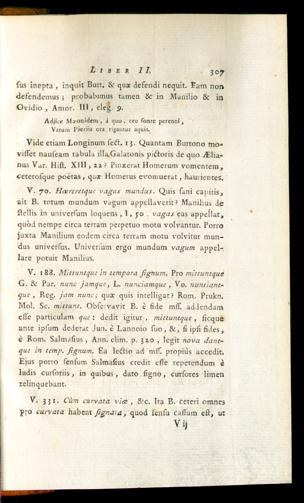 LIBER II. 307
sus inepta, inquit Burt. & quæ defendi nequit. Eam non
defendemus; probabimus tamen & in Manilio & in
Ovidio, Amor. III, eleg. 9.
Adjice Mæonidem, à quo, ceu fonte perenni,
Vatum Pieriis ora rigantur aquis.
Vide etiam Longinum sect. 13. Quantam Burtono mo-
visset nauseam tabula illa Galatonis pictoris de quo Ælia-
nus Var. Hist. XIII, 22? Pinxerat Homerum vomentem,
ceterosque poëtas, quæ Homerus evomuerat, haurientes.
V. 70. Hæreretque vagus mundus. Quis sani capitis,
ait B. totum mundum vagum appellaverit? Manilius de
stellis in universum loquens, I, 50. vagas eas appellat,
quòd nempe circa terram perpetuo motu volvantur. Porro
juxta Manilium eodem circa terram motu volvitur mun-
dus universus. Universum ergo mundum vagum appel-
lare potuit Manilius.
V. 188. Mittuntque in tempora signum. Pro mittuntque
G. & Par. nunc jamque, L. nunciamque, Vo. nunciant-
que, Reg. jam nunc: quæ quis intelligat? Rom. Prukn.
Mol. Sc. mittunt. Observavit B. è fide mss. addendam
esse particulam que: dedit igitur, mittuntque, sicque
ante ipsum dederat Jun. è Lannoio suo, &, si ipsi fides,
è Rom. Salmasius, Ann. clim. p. 320, legit nova dant-
que in temp. signum. Ea lectio ad mss. propiùs accedit.
Ejus porro sensum Salmasius credit esse repetendum è
ludis cursoriis, in quibus, dato signo, cursores limen
relinquebant.
V. 331. Cùm curvata viæ, &c. Ita B. ceteri omnes
pro curvata habent signata, quod sensu cassum est, ut
V ij